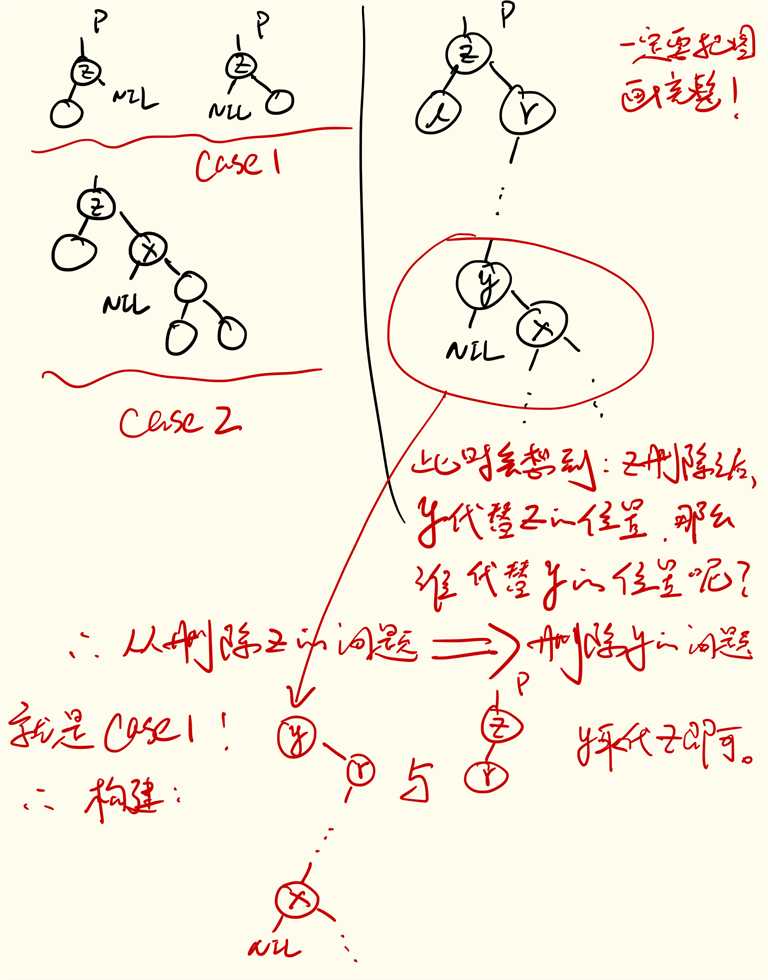 P
z
NIL
P
z
NIL
Case 1
z
x
NIL
Case 2
P
z
r
一定要把图
画完整！
y
NIL
x
此时会想到：z删除后，
y代替z的位置，那么
谁代替y的位置呢？
∴ 从删除z的问题 ⟹ 删除y的问题
就是Case 1！
∴ 构建：
y
r
x
NIL
与
P
z
r
y取代z即可。